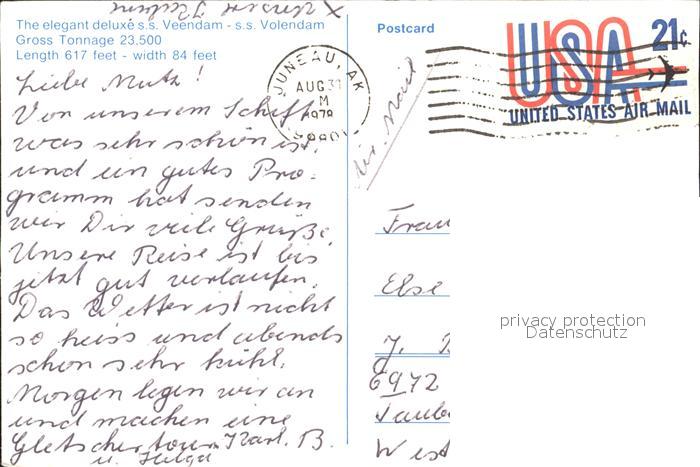 The elegant deluxe s.s. Veendam - s.s. Volendam
Gross Tonnage 23.500
Length 617 feet - width 84 feet
Liebe Mutz!
Von unserem Schiff,
was sehr schön ist,
und ein gutes Pro-
gramm hat senden
wir Dir viele Grüße.
Unsere Reise ist bis
jetzt gut verlaufen.
Das Wetter ist nicht
so heiss und abends
schon sehr kühl.
Morgen legen wir an
und machen eine
Gletschertour. Karl. B.
u. Helga
Postcard
JUNEAU, AK
AUG 31
M
1979
USA
21¢
UNITED STATES AIR MAIL
Air Mail
Frau
Else
J.
6972
Taube
West
privacy protection
Datenschutz